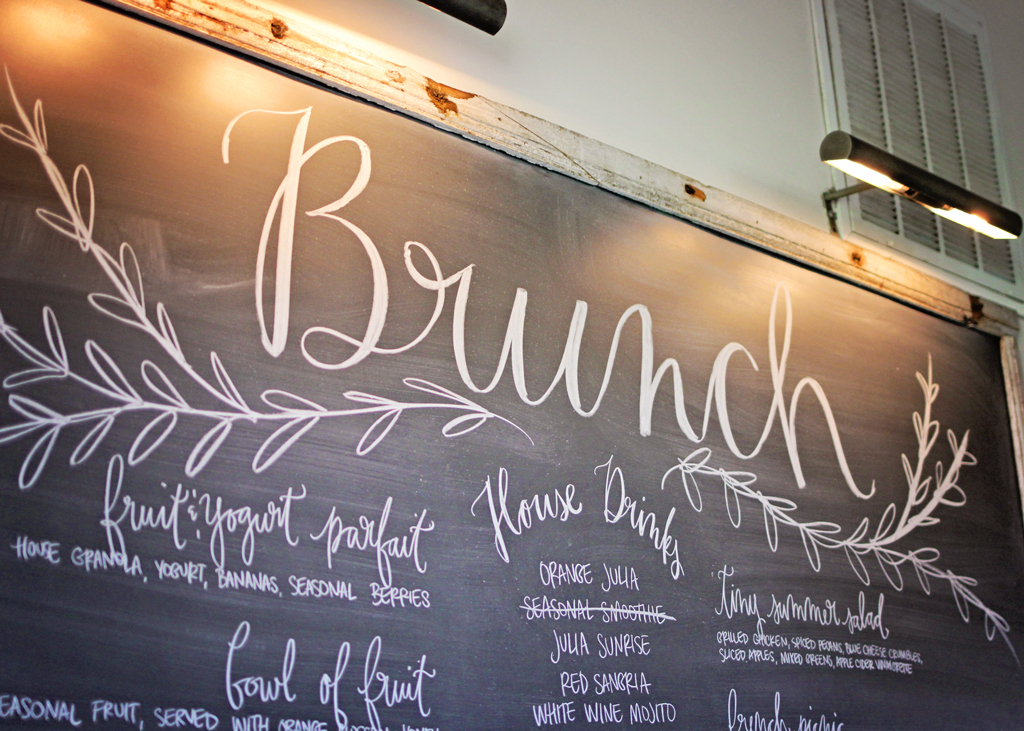 Brunch
fruit & yogurt parfait
HOUSE GRANOLA, YOGURT, BANANAS, SEASONAL BERRIES
bowl of fruit
SEASONAL FRUIT, SERVED WITH ORANGE
House Drinks
ORANGE JULIA
SEASONAL SMOOTHIE
JULIA SUNRISE
RED SANGRIA
WHITE WINE MOJITO
tiny summer salad
GRILLED CHICKEN, SPICED PECANS, BLUE CHEESE CRUMBLES,
SLICED APPLES, MIXED GREENS, APPLE CIDER VINAIGRETTE
picnic